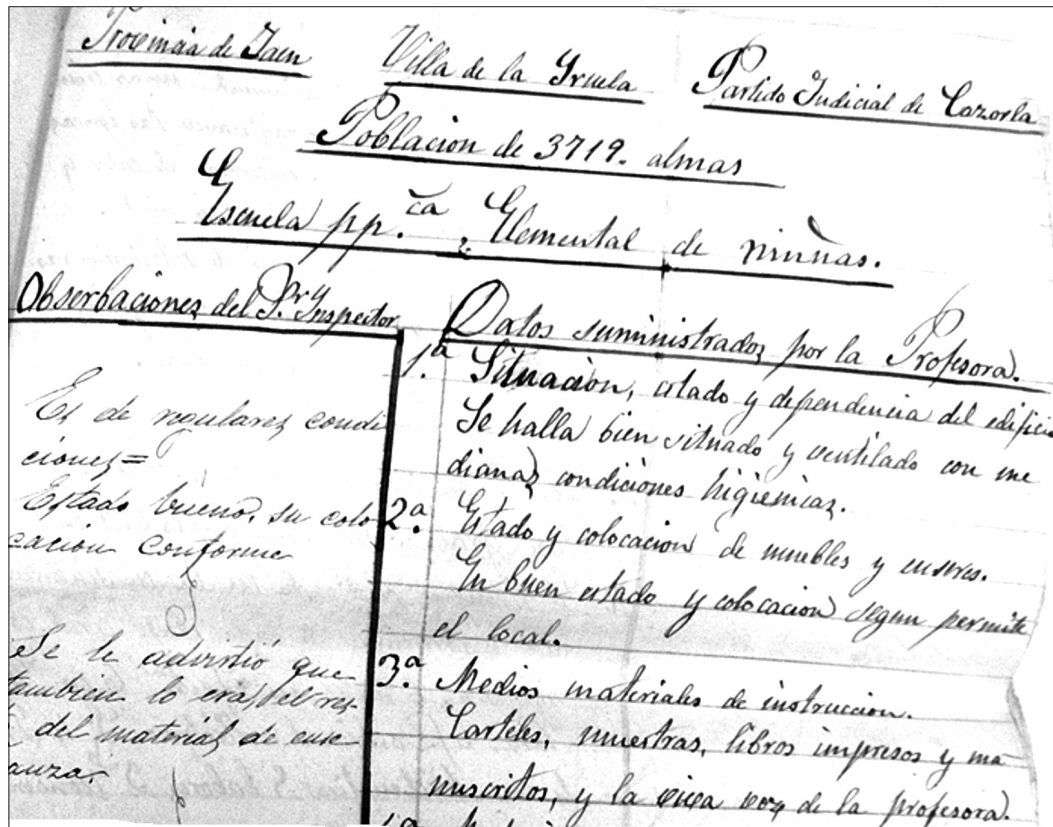 Provincia de Jaen
Villa de la Yruela
Partido Judicial de Cazorla
Poblacion de 3719. almas
Escuela pp.ca Elemental de niñas.
Obserbaciones del Sr. Ynspector
Es de regulares condi
ciones=
Estado bueno, su colo-
cacion conforme
Se le advirtió que
tambien lo era, el res-
del material de ense
anza.
Datos suministrados por la Profesora.
1.a Situacion, estado y dependencia del edificio
Se halla bien situado y ventilado con me
dianas condiciones higienicas.
2.a Estado y colocacion de muebles y enseres.
En buen estado y colocacion segun permite
el local.
3.a Medios materiales de instruccion.
Carteles, muestras, libros impresos y ma-
nuscritos, y la viva voz de la profesora.